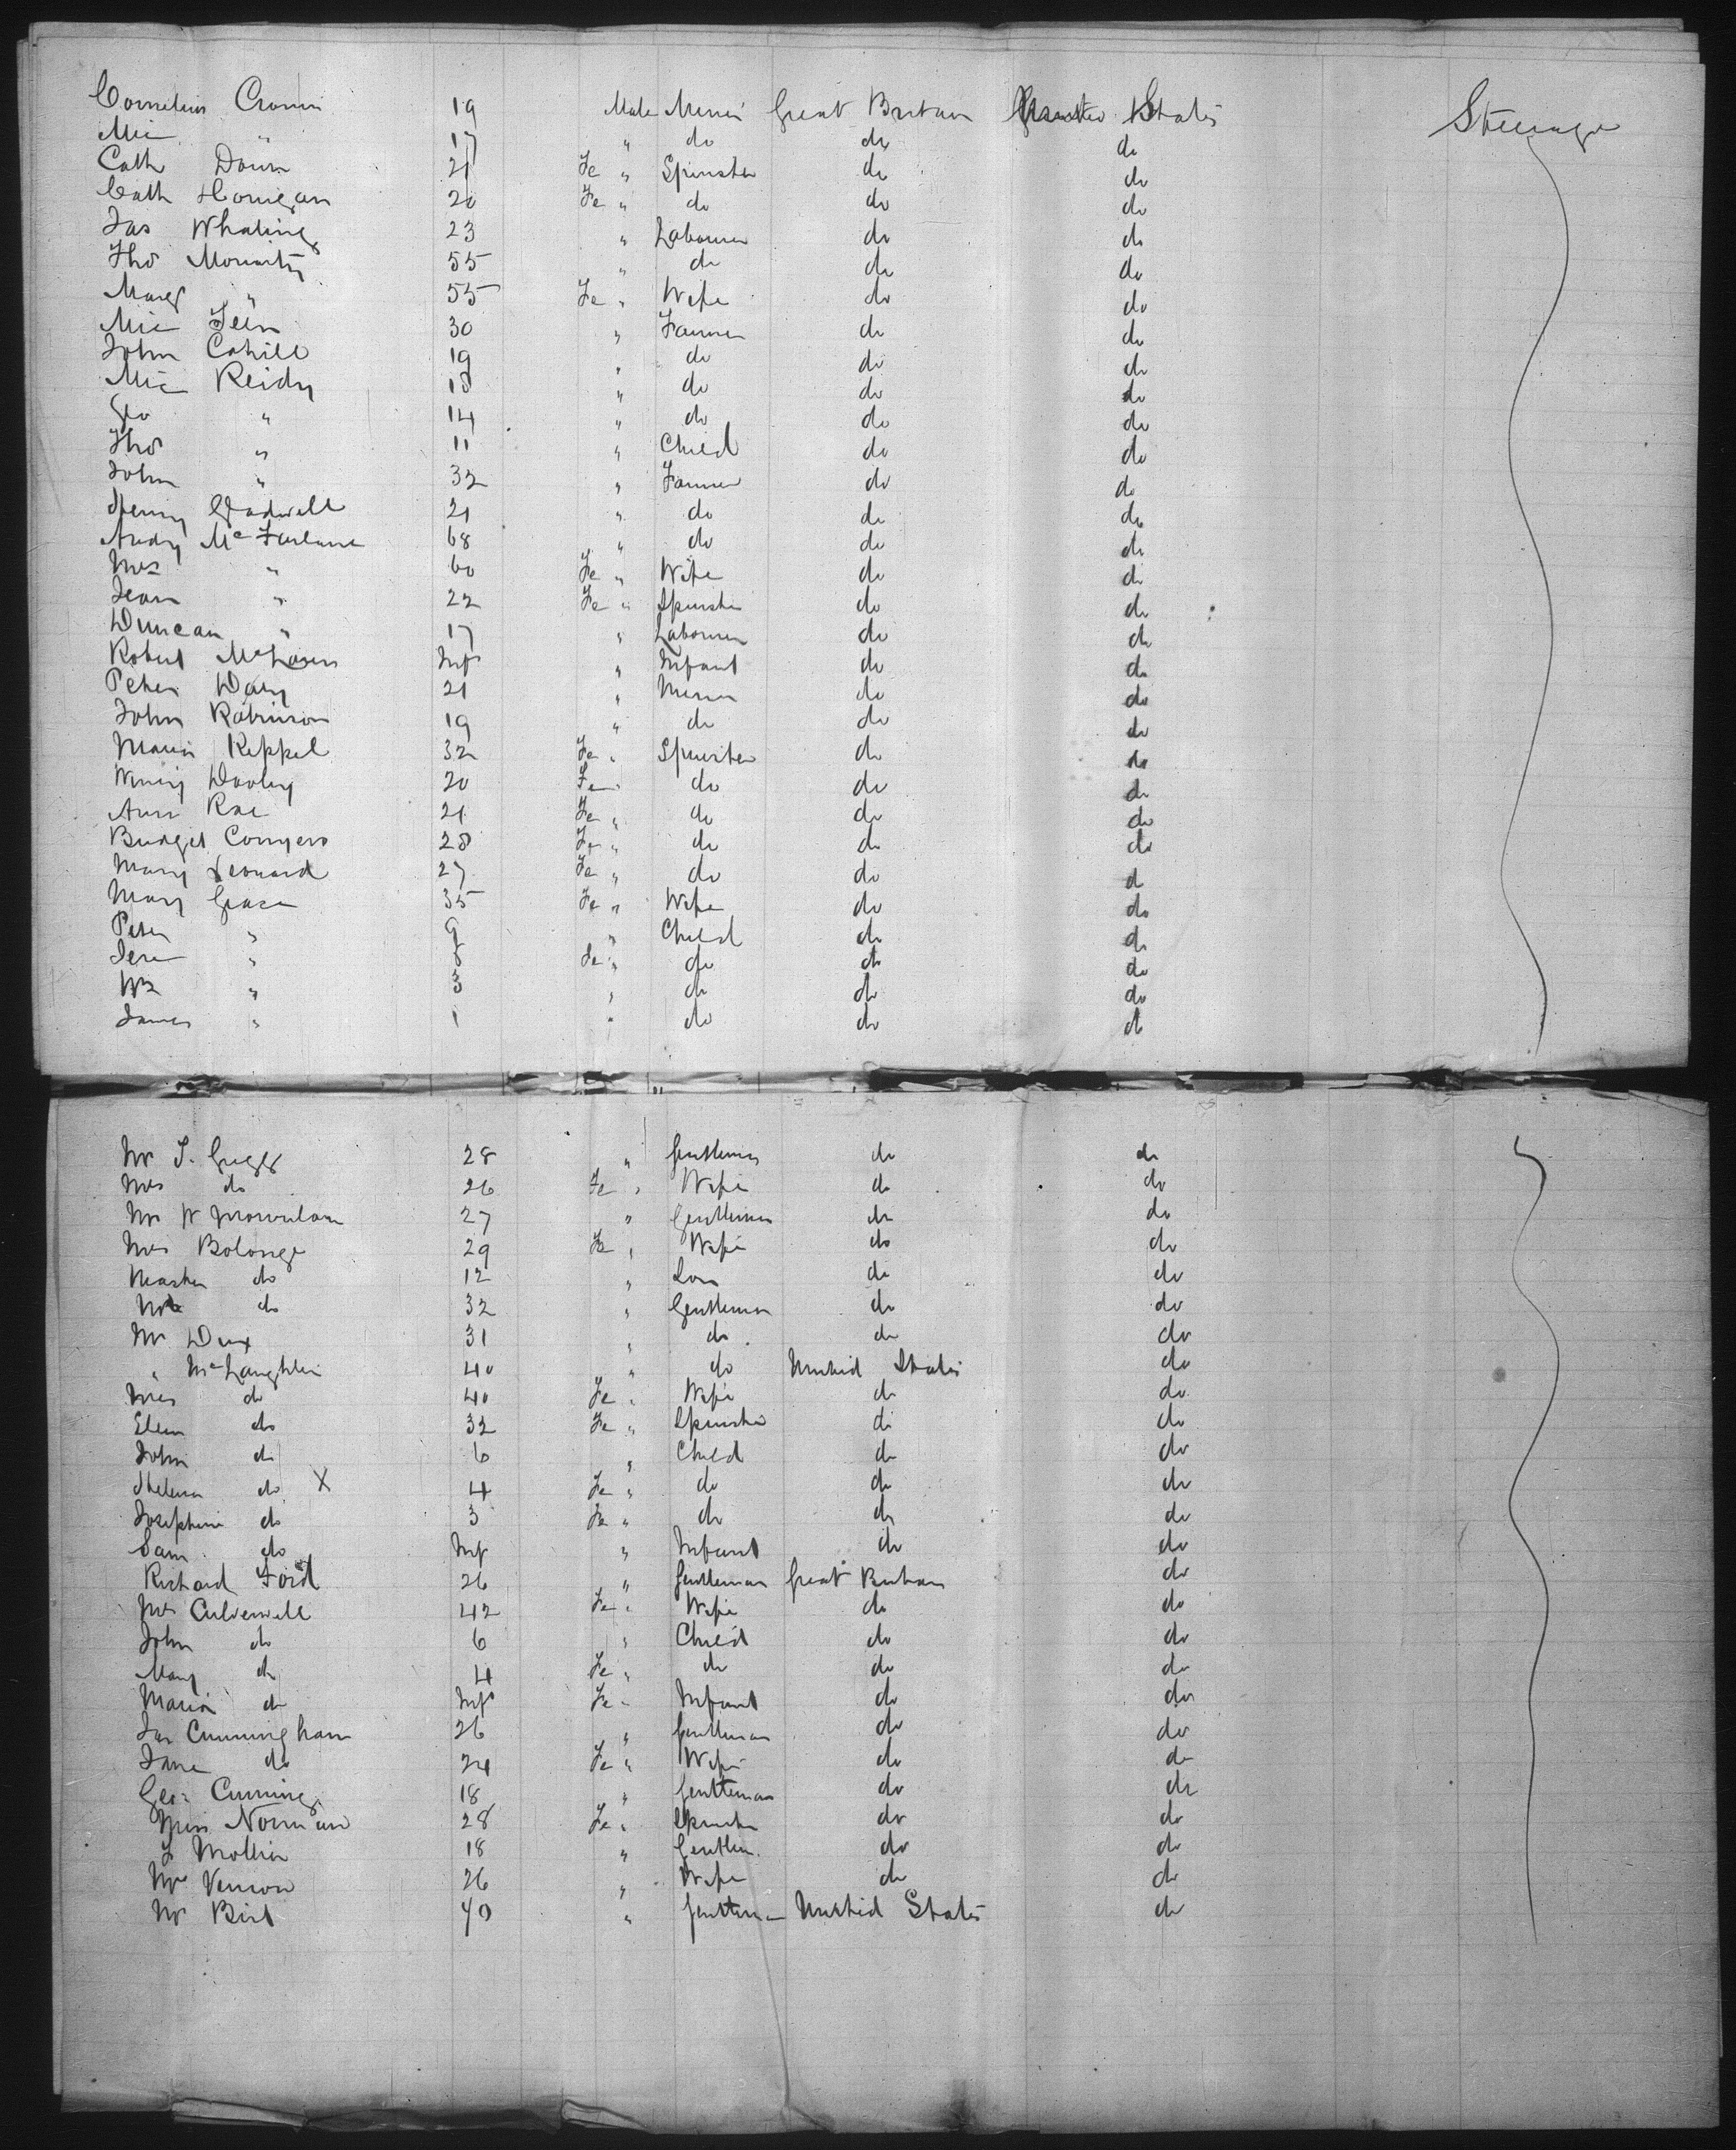 Cornelius Cronin 19 Male Miner Great Britain United States Steerage
Mic " 17 " do do do
Cath Down 21 Fe " Spinster do do
Cath Horrigan 20 Fe " do do do
Jas Whaling 23 " Labourer do do
Thos Moriarty 55 " do do do
Marg " 55 Fe " Wife do do
Mic 30 " Farmer do do
John Cahill 19 " do do do
Mic Reidy 18 " do do do
Geo " 14 " do do do
Thos " 11 " Child do do
John " 32 " Farmer do do
Henry 21 " do do do
Andy McFarlane 68 " do do do
Mrs " 60 Fe " Wife do do
Jean " 22 Fe " Spinster do do
Duncan " 17 " Labourer do do
Robert McLaren Inft " Infant do do
Peter Daly 21 " Miner do do
John Robinson 19 " do do do
Maria Keppel 32 Fe " Spinster do do
Winny Dooley 20 Fe " do do do
Ann Rae 21 Fe " do do do
Bridget Conyers 28 Fe " do do do
Mary Leonard 27 Fe " do do do
Mary Grace 35 Fe " Wife do do
Peter " 9 " Child do do
" 8 Fe " do do do
Wm " 3 " do do do
James " 1 " do do do
Mr T. Griggs 28 " Gentleman do do
Mrs do 26 Fe " Wife do do
Mr W 27 " Gentleman do do
Mrs Bolonge 29 Fe " Wife do do
Master do 12 " Son do do
Mr do 32 " Gentleman do do
Mr Dux 31 " do do do
" McLaughlin 40 " do United States do
Mrs do 40 Fe " Wife do do
Ellen do 32 Fe " Spinster do do
John do 6 " Child do do
do X 4 Fe " do do do
Josephine do 3 Fe " do do do
Sam do Inft " Infant do do
Richard Ford 26 " Gentleman Great Britain do
Mrs Culverwell 42 Fe " Wife do do
John do 6 " Child do do
Mary do 4 Fe " do do do
Maria do Inft Fe " Infant do do
Jas Cunningham 26 " Gentleman do do
Jane do 24 Fe " Wife do do
Geo. Cuming 18 " Gentleman do do
Miss Norman 28 Fe " Spinster do do
Mollin 18 " Gentlem. do do
Mrs Vernon 26 " Wife do do
Mr Birt 40 " Gentleman United States do